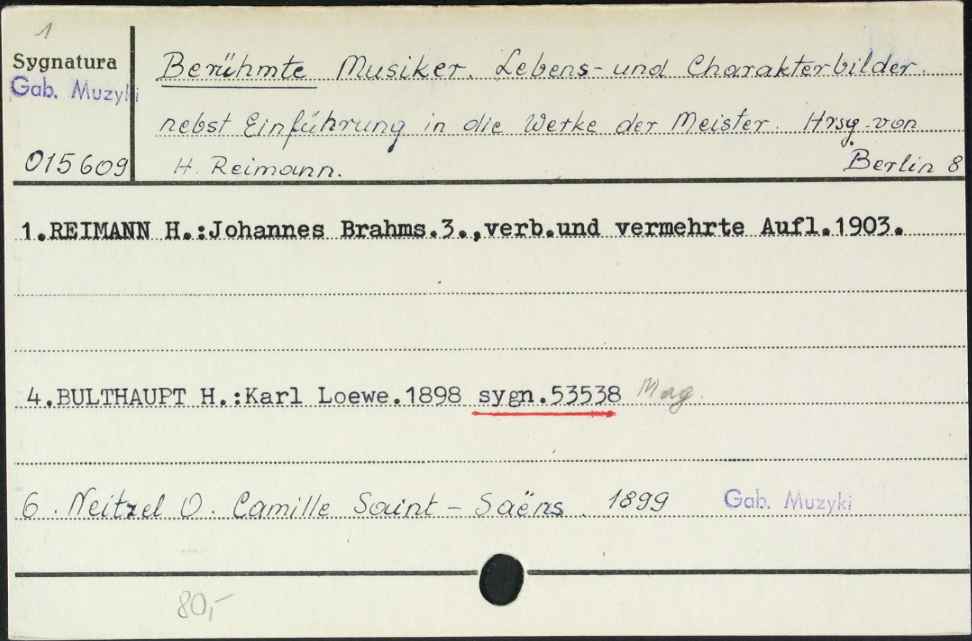 1
Sygnatura
Gab. Muzyki
015609
Berühmte Musiker. Lebens- und Charakterbilder
nebst Einführung in die Werke der Meister. Hrsg. von
H. Reimann. Berlin 8
1.REIMANN H.:Johannes Brahms.3.,verb.und vermehrte Aufl.1903.
4.BULTHAUPT H.:Karl Loewe.1898 sygn.53538 Mag.
6. Neitzel O. Camille Saint-Saëns. 1899 Gab. Muzyki
80,-